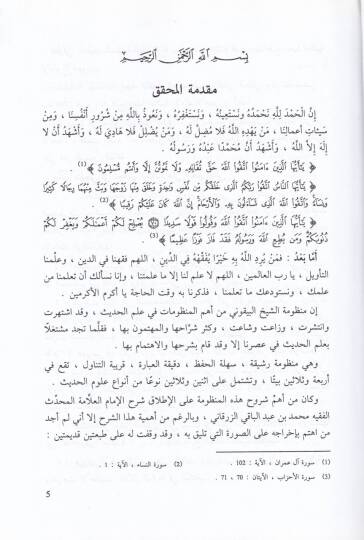 بِسْمِ اللَّهِ الرَّحْمَنِ الرَّحِيمِ
مقدمة المحقق
إِنَّ الْحَمْدَ لِلَّهِ نَحْمَدُهُ وَنَسْتَعِينُهُ ، وَنَسْتَغْفِرُهُ ، وَنَعُوذُ بِاللَّهِ مِنْ شُرُورِ أَنْفُسِنَا ، وَمِنْ
سَيِّئَاتِ أَعْمَالِنَا ، مَنْ يَهْدِهِ اللَّهُ فَلَا مُضِلَّ لَهُ ، وَمَنْ يُضْلِلْ فَلَا هَادِيَ لَهُ ، وَأَشْهَدُ أَنْ لَا
إِلَهَ إِلاَّ اللَّهُ ، وَأَشْهَدُ أَنَّ مُحَمَّدًا عَبْدُهُ وَرَسُولُهُ .
﴿ يَا أَيُّهَا الَّذِينَ ءَامَنُوا اتَّقُوا اللَّهَ حَقَّ تُقَاتِهِ وَلَا تَمُوتُنَّ إِلَّا وَأَنتُم مُّسْلِمُونَ ﴾ (1) .
﴿ يَا أَيُّهَا النَّاسُ اتَّقُوا رَبَّكُمُ الَّذِي خَلَقَكُم مِّن نَّفْسٍ وَاحِدَةٍ وَخَلَقَ مِنْهَا زَوْجَهَا وَبَثَّ مِنْهُمَا رِجَالًا كَثِيرًا
وَنِسَاءً وَاتَّقُوا اللَّهَ الَّذِي تَسَاءَلُونَ بِهِ وَالْأَرْحَامَ إِنَّ اللَّهَ كَانَ عَلَيْكُمْ رَقِيبًا ﴾ (2) .
﴿ يَا أَيُّهَا الَّذِينَ ءَامَنُوا اتَّقُوا اللَّهَ وَقُولُوا قَوْلًا سَدِيدًا يُصْلِحْ لَكُمْ أَعْمَالَكُمْ وَيَغْفِرْ لَكُمْ
ذُنُوبَكُمْ وَمَن يُطِعِ اللَّهَ وَرَسُولَهُ فَقَدْ فَازَ فَوْزًا عَظِيمًا ﴾ (3) .
أَمَّا بَعْدُ : فَمَنْ يُرِدِ اللَّهُ بِهِ خَيْرًا يُفَقِّهْهُ فِي الدِّينِ ، اللهم فقهنا في الدين ، وعلّمنا
التأويل ، يا رب العالمين ، اللهم لا علم لنا إلا ما علمتنا ، وإنا نسألك أن تعلمنا من
علمك ، ونستودعك ما تعلمنا ، فذكرنا به وقت الحاجة يا أكرم الأكرمين .
إن منظومة الشيخ البيقوني من أهم المنظومات في علم الحديث ، وقد اشتهرت
وانتشرت ، وذاعت وشاعت ، وكثر شرّاحها والمهتمون بها ، فقلّما تجد مشتغلاً
بعلم الحديث في عصرنا إلا وقد قام بشرحها والاهتمام بها .
وهي منظومة رشيقة ، سهلة الحفظ ، دقيقة العبارة ، قريبة التناول ، تقع في
أربعة وثلاثين بيتًا ، وتشتمل على اثنين وثلاثين نوعًا من أنواع علوم الحديث .
وكان من أهمّ شروح هذه المنظومة على الإطلاق شرح الإمام العلّامة المحدّث
الفقيه محمد بن عبد الباقي الزرقاني ، وبالرغم من أهمية هذا الشرح إلا أني لم أجد
من اهتم بإخراجه على الصورة التي تليق به ، وقد وقفت له على طبعتين قديمتين :
(1) سورة آل عمران ، الآية : 102 . (2) سورة النساء ، الآية : 1 .
(3) سورة الأحزاب ، الآيتان : 70 ، 71 .
5